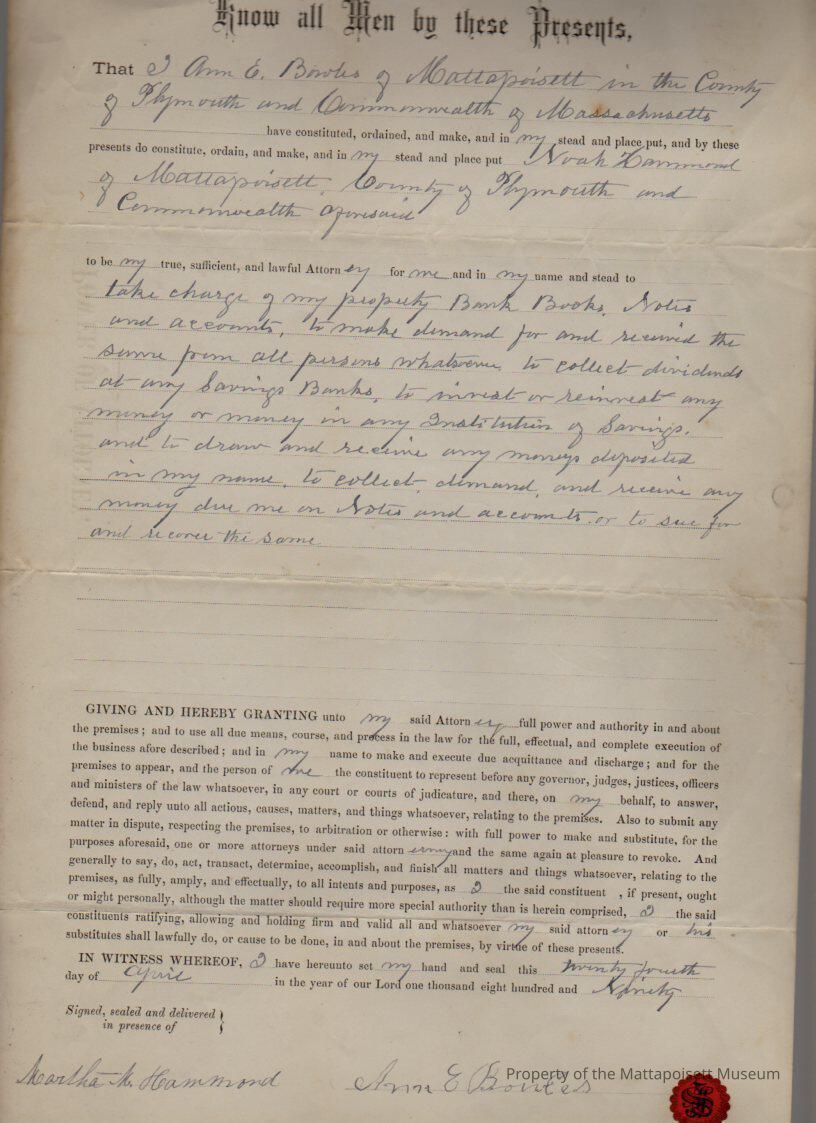 Know all Men by these Presents,
That I Ann E. Bowles of Mattapoisett in the County
of Plymouth and Commonwealth of Massachusetts
have constituted, ordained, and make, and in my stead and place put, and by these
presents do constitute, ordain, and make, and in my stead and place put Noah Hammond
of Mattapoisett, County of Plymouth and
Commonwealth aforesaid
to be my true, sufficient, and lawful Attorn ey for me and in my name and stead to
take charge of my property Bank Books, Notes
and accounts, to make demand for and received the
same from all persons whatsoever, to collect dividends
at any Savings Banks, to invest or reinvest any
money or money in any Institution of Savings.
and to draw and receive any moneys deposited
in my name, to collect, demand, and receive any
money due me on Notes and accounts. or to sue for
and recover the same
GIVING AND HEREBY GRANTING unto my said Attorn ey full power and authority in and about
the premises; and to use all due means, course, and process in the law for the full, effectual, and complete execution of
the business afore described; and in my name to make and execute due acquittance and discharge; and for the
premises to appear, and the person of me the constituent to represent before any governor, judges, justices, officers
and ministers of the law whatsoever, in any court or courts of judicature, and there, on my behalf, to answer,
defend, and reply unto all actions, causes, matters, and things whatsoever, relating to the premises. Also to submit any
matter in dispute, respecting the premises, to arbitration or otherwise: with full power to make and substitute, for the
purposes aforesaid, one or more attorneys under said attorn and the same again at pleasure to revoke. And
generally to say, do, act, transact, determine, accomplish, and finish all matters and things whatsoever, relating to the
premises, as fully, amply, and effectually, to all intents and purposes, as I the said constituent , if present, ought
or might personally, although the matter should require more special authority than is herein comprised, I the said
constituents ratifying, allowing and holding firm and valid all and whatsoever my said attorn ey or his
substitutes shall lawfully do, or cause to be done, in and about the premises, by virtue of these presents.
IN WITNESS WHEREOF, I have hereunto set my hand and seal this twenty fourth
day of April in the year of our Lord one thousand eight hundred and Ninety
Signed, sealed and delivered
in presence of
Martha M. Hammond Ann E Bowles
Property of the Mattapoisett Museum